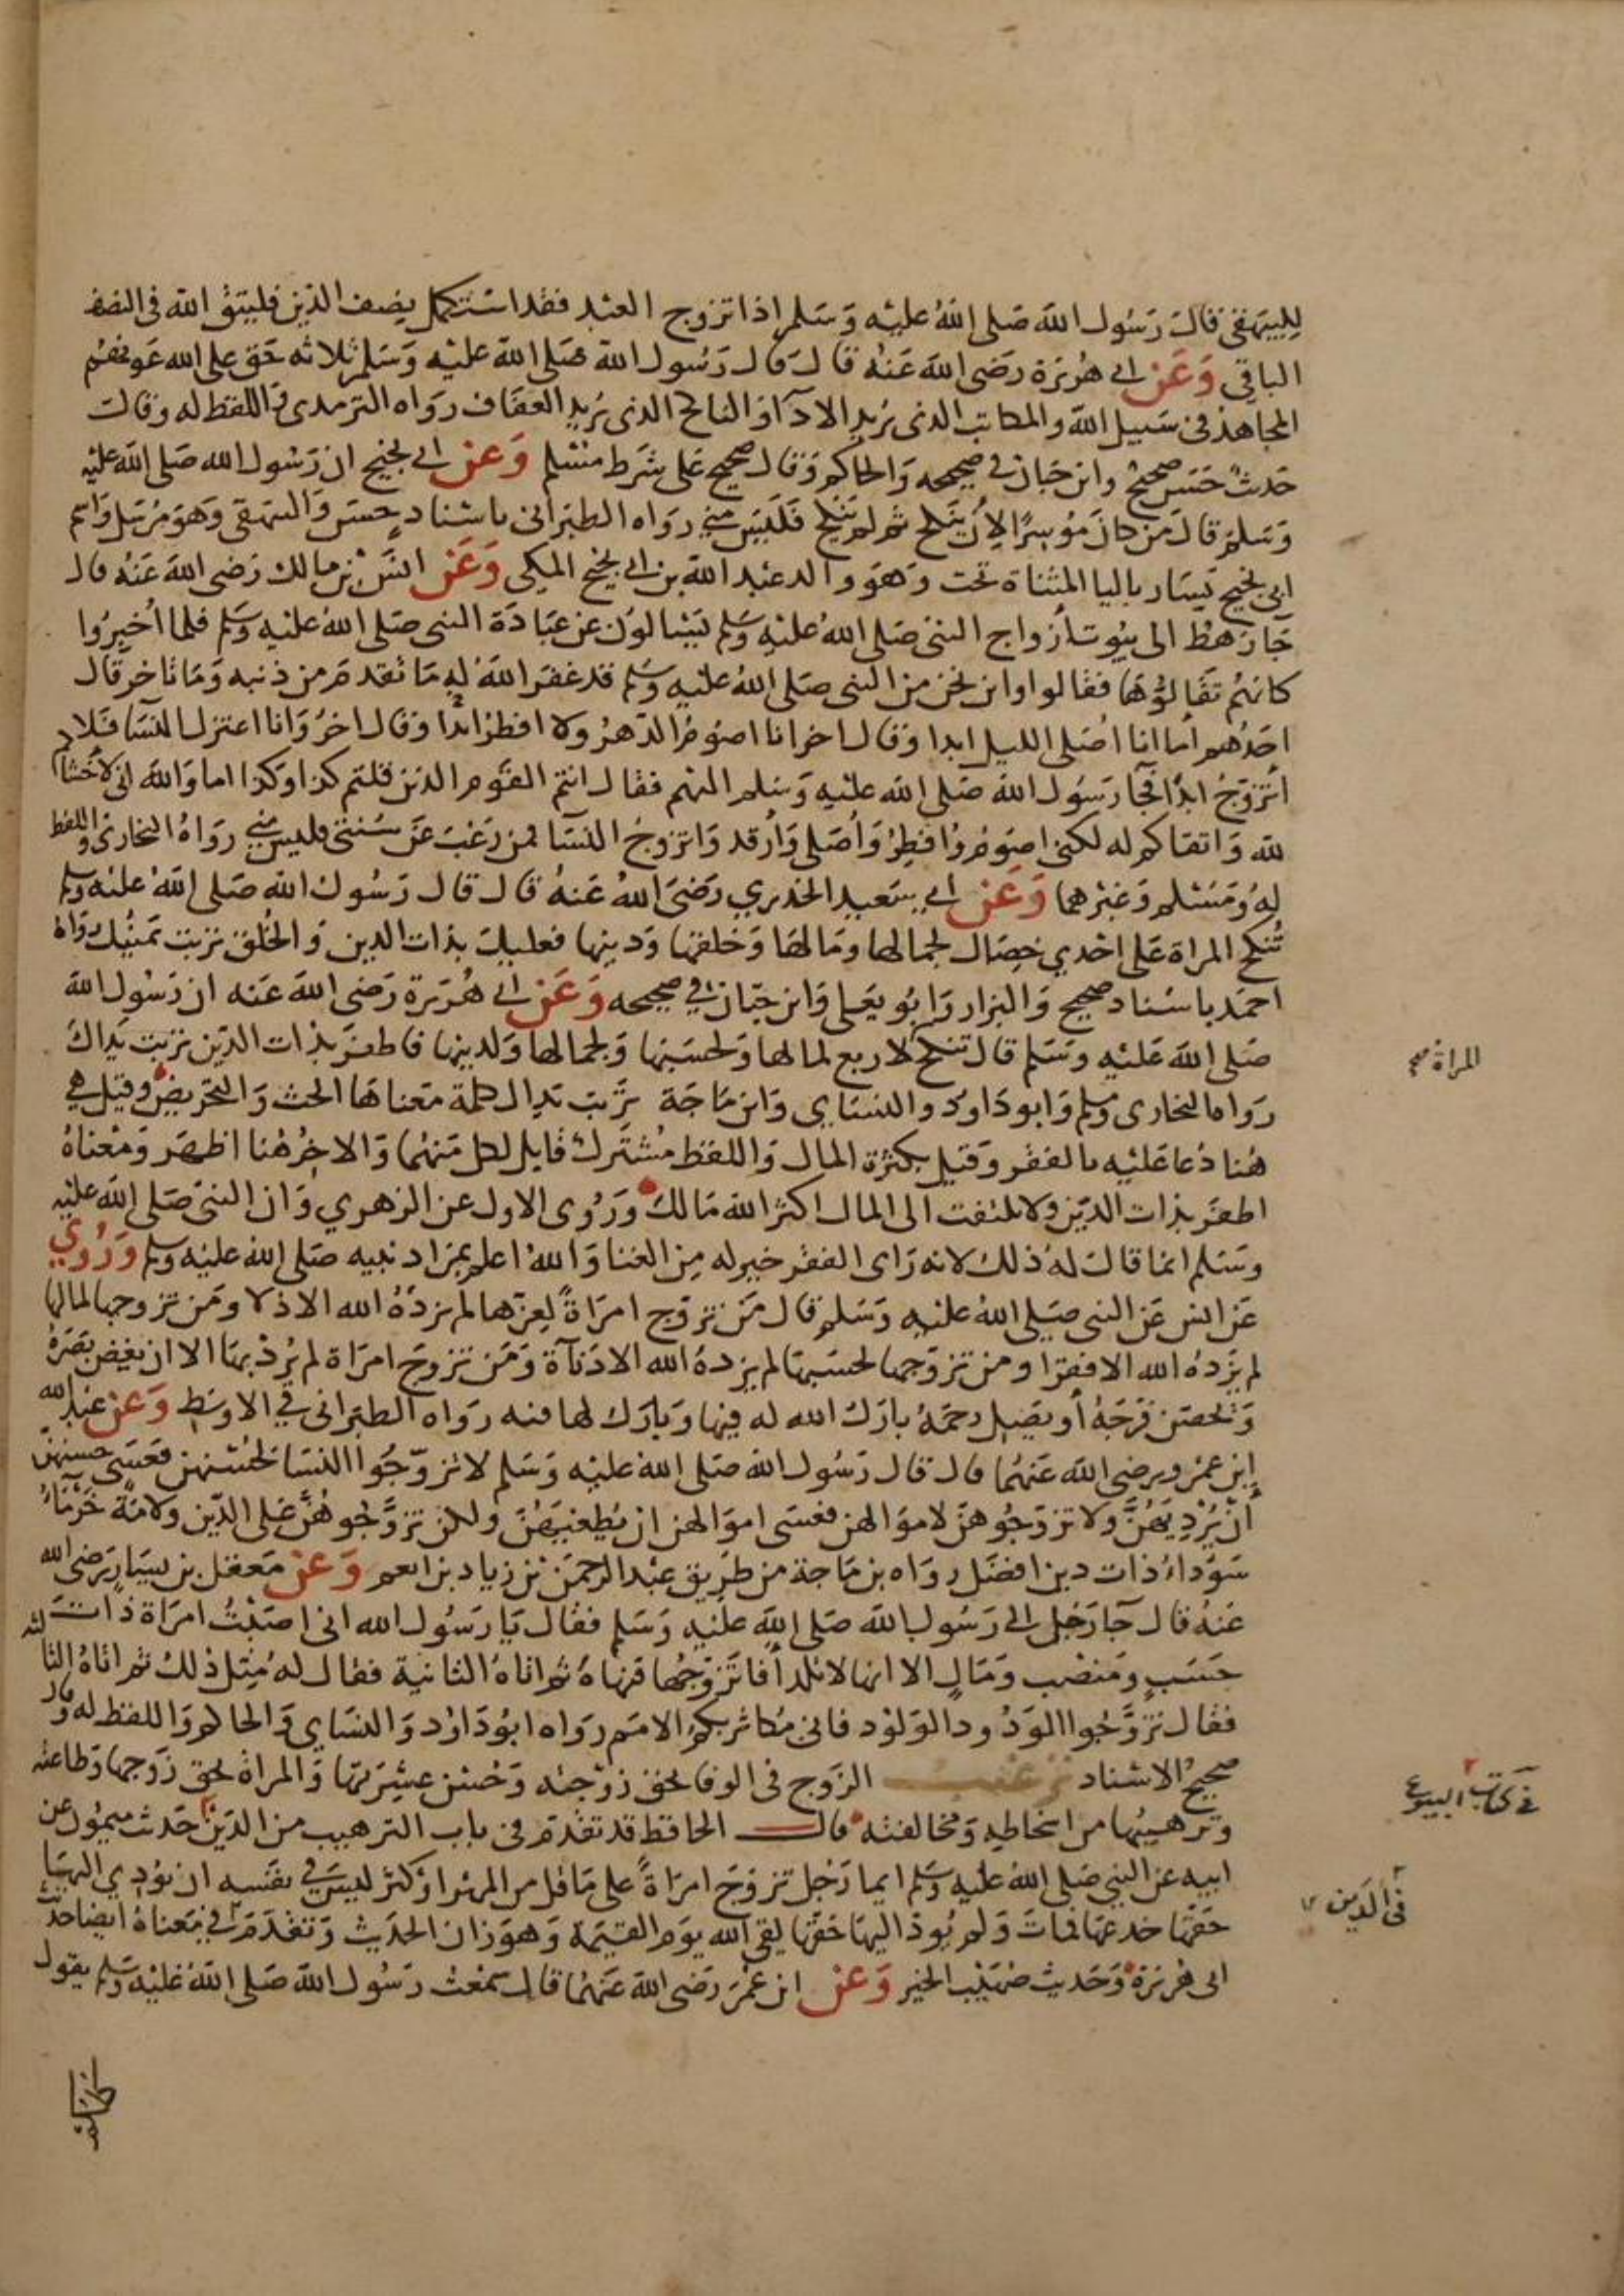 للبيهقي قال رسول الله صلى الله عليه وسلم اذا تزوج العبد فقد استكمل نصف الدين فليتق الله في النصف
الباقي وعن ابي هريرة رضي الله عنه قال قال رسول الله صلى الله عليه وسلم ثلاثه حق على الله عونهم
المجاهد في سبيل الله والمكاتب الذي يريد الادآ والناكح الذي يريد العفاف رواه الترمذي واللفظ له وقال
حديث حسن صحيح وابن حبان في صحيحه والحاكم وقال صحيح على شرط مسلم وعن ابي نجيح ان رسول الله صلى الله عليه
وسلم قال من كان موسرا لان ينكح ثم لم ينكح فليس مني رواه الطبراني باسناد حسن والبيهقي وهو مرسل واسم
ابي نجيح يسار باليا المثناة تحت وهو والد عبد الله بن ابي نجيح المكي وعن انس بن مالك رضي الله عنه قال
جا رهط الى بيوت أزواج النبي صلى الله عليه وسلم يسالون عن عبادة النبي صلى الله عليه وسلم فلما اُخبِرُوا
كانهم تقالوها فقالوا واين نحن من النبي صلى الله عليه وسلم قد غفر الله له ما تقدم من ذنبه وما تاخر قال
احدهم أما انا اصلي الليل ابدا وقال اخر انا اصوم الدهر ولا افطر ابدا وقال اخر وانا اعتزل النسا فلا
اتزوج ابدًا فجا رسول الله صلى الله عليه وسلم اليهم فقال انتم القوم الذين قلتم كذا وكذا اما والله اني لاخشاكم
لله واتقاكم له لكني اصوم وافطر وأصلي وأرقد واتزوج النسا فمن رغب عن سنتي فليس مني رواه البخاري واللفظ
له ومسلم وغيرهما وعن ابي سعيد الخدري رضي الله عنه قال قال رسول الله صلى الله عليه وسلم
تُنكح المراة على احدي خصال لجمالها ومالها وخلقها ودينها فعليك بذات الدين والخُلق تربت يمينك رواه
احمد باسناد صحيح والبزار وابو يعلى وابن حبان في صحيحه وعن ابي هريرة رضي الله عنه ان رسول الله
صلى الله عليه وسلم قال تنكح لاربع لمالها ولحسبها ولجمالها ولدينها فاظفر بذات الدين تربت يداك
المراة صح
رواه البخاري ومسلم وابو داود والنساي وابن ماجة تربت يداك كلمة معناها الحث والتحريض وقيل هي
هُنا دُعا عليه بالفقر وقيل بكثرة المال واللفظ مُشترك قابل لكل منهما والاخر هنا اظهر ومعناه
اظفر بذات الدين ولا تلتفت الى المال اكثر الله مالك ورُوى الاول عن الزهري وان النبي صلى الله عليه
وسلم انما قال له ذلك لانه راى الفقر خير له من الغنا والله اعلم بمراد نبيه صلى الله عليه وسلم ورُوي
عن انس عن النبي صلى الله عليه وسلم قال من تزوج امراةً لعزها لم يزدهُ الله الا ذلا ومن تزوجها لمالها
لم يزده الله الا فقرا ومن تزوجها لحسبها لم يزدهُ الله الا دناءة ومن تزوج امراة لم يُرد بها الا ان يغض بصره
ويحصن فرجه أو يصل رحمهُ بارك الله له فيها وبارك لها فيه رواه الطبراني في الاوسط وعن عبد الله
ابن عمرو رضي الله عنهما قال قال رسول الله صلى الله عليه وسلم لا تزوجوا النسا لحسنهن فعسى حسنهن
أن يُرديَهُنَّ ولا تزوجُوهن لاموالهن فعسى اموالهن ان تُطغيَهُنَّ ولكن تزوَّجوهُنَّ على الدين ولامةٌ خَرْمَاءُ
سوداءُ ذات دين افضل رواه بن ماجة من طريق عبد الرحمن بن زياد بن انعم وعن معقل بن يسار رضي الله
عنه قال جا رجل الى رسول الله صلى الله عليه وسلم فقال يا رسول الله اني اصبتُ امراة ذات
حسبٍ ومنصب ومالٍ الا انها لا تلد أفاتزوجُها فنهاهُ ثم اتاهُ الثانية فقال له مثل ذلك ثم اتاهُ الثالثه
فقال تزوَّجُوا الودُود الولود فاني مُكاثر بكم الامم رواه ابو داود والنساي والحاكم واللفظ له وقال
صحيح الاسناد ترغيب الزوج في الوفا بحق زوجته وحُسن عِشرتها والمراة بحق زوجها وطاعته
وترهيبُها من اسخاطه ومخالفته قال الحافظ قد تقدم في باب الترهيب من الدَين حديث ميمُون عن
في كتاب البيوع
ابيه عن النبي صلى الله عليه وسلم ايما رجل تزوج امراةً على ما قل من المهر او كثر ليس في نفسه ان يؤدي اليها
حقها خدعها فمات ولم يُود اليها حقها لقي الله يوم القيمة وهو زان الحديث وتقدم في معناهُ ايضا حديث
في الدَين
ابي هريرة وحديث صُهَيب الخير وعن ابن عمر رضي الله عنهما قال سمعت رسول الله صلى الله عليه وسلم يقول